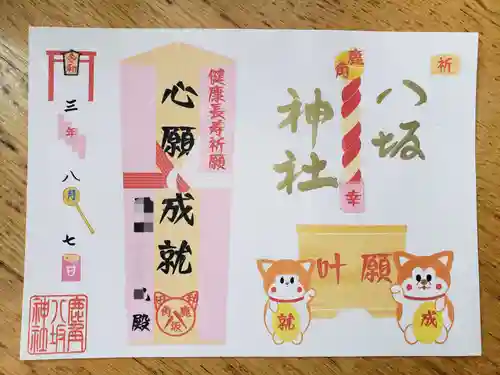 祈
八坂
神社
鹿角
幸
願叶
成
就
健康長寿祈願
心願成就
殿
令和
三年八月七日
鹿角
八坂
神社